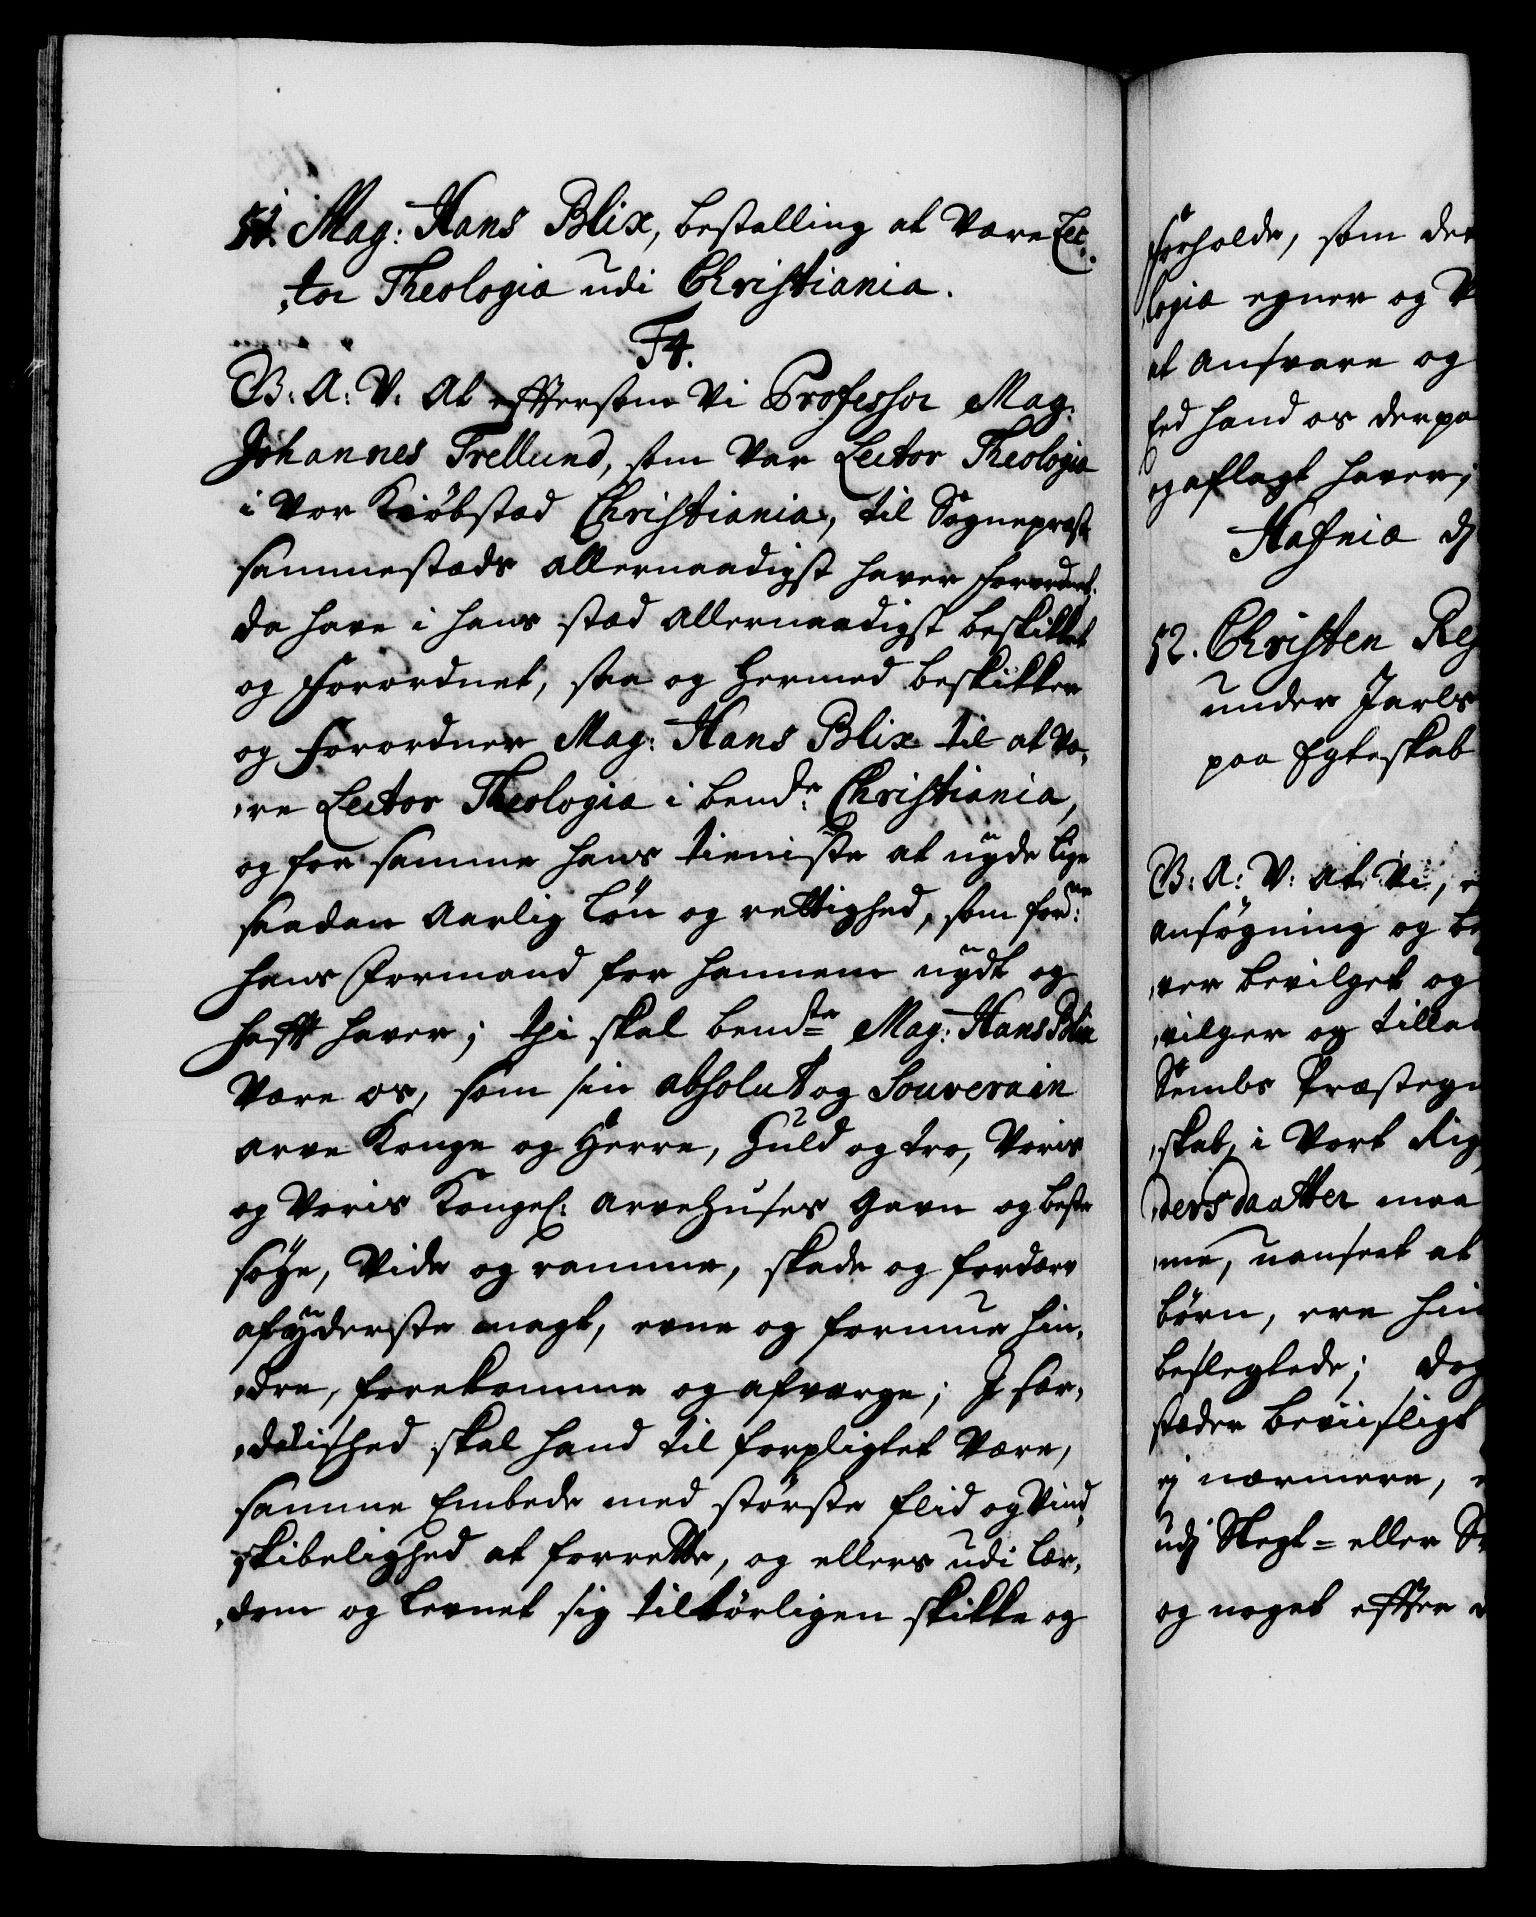 51. Mag: Hans Blix, bestalling at være Lec-
tor Theologiæ udi Christiania.
F4.
B: A: V. At efftersom Vi Professor Mag:
Johannes Trellund, som var Lector Theologiæ
i Vor Kiöbstad Christiania, til Sognepræst
sammestæds allernaadigst haver forordnet,
da have i hans stæd allernaadigst beskikket
og forordnet, saa og hermed beskikker
og forordner Mag: Hans Blix til at væ-
re Lector Theologiæ i bemdte Christiania,
og for samme hans tieniste at nyde lige
saadan Aarlig løn og rettighed, som forne
hans Formand for hannem nydt og
hafft haver; thi skal bemdte Mag: Hans Blix
være os, som sin absolut og Souverain
arve Konge og Herre, Huld og tro, Voris
og Voris Kongel: Arvehuses gavn og beste
søge, Vide og ramme, skade og fordærv
af yderste magt, evne og formue hin-
dre, forekomme og afværge; I sær-
delished skal hand til forpligtet være,
samme Embede med største flid og Vind-
skibelighed at forrette, og ellers udi lær-
dom og levnet sig tilbörligen skikke og
forholde, som de
logiæ egner og
at ansvare og
Eed hand os derpaa
og aflagt haver;
Hafniæ d
52. Christen
under Jarls
paa Egteskab
B: A: V: at Vi,
ansøgning og
ver bevilget og
vilger og
Sembs Præstegi
skab, i Vort Rig
dersdaatter maa
me, uanseet at
børn, ere
beslegtede; dog
stæder beviisligt
ej nærmere,
udj Slegt- eller
og noget effter